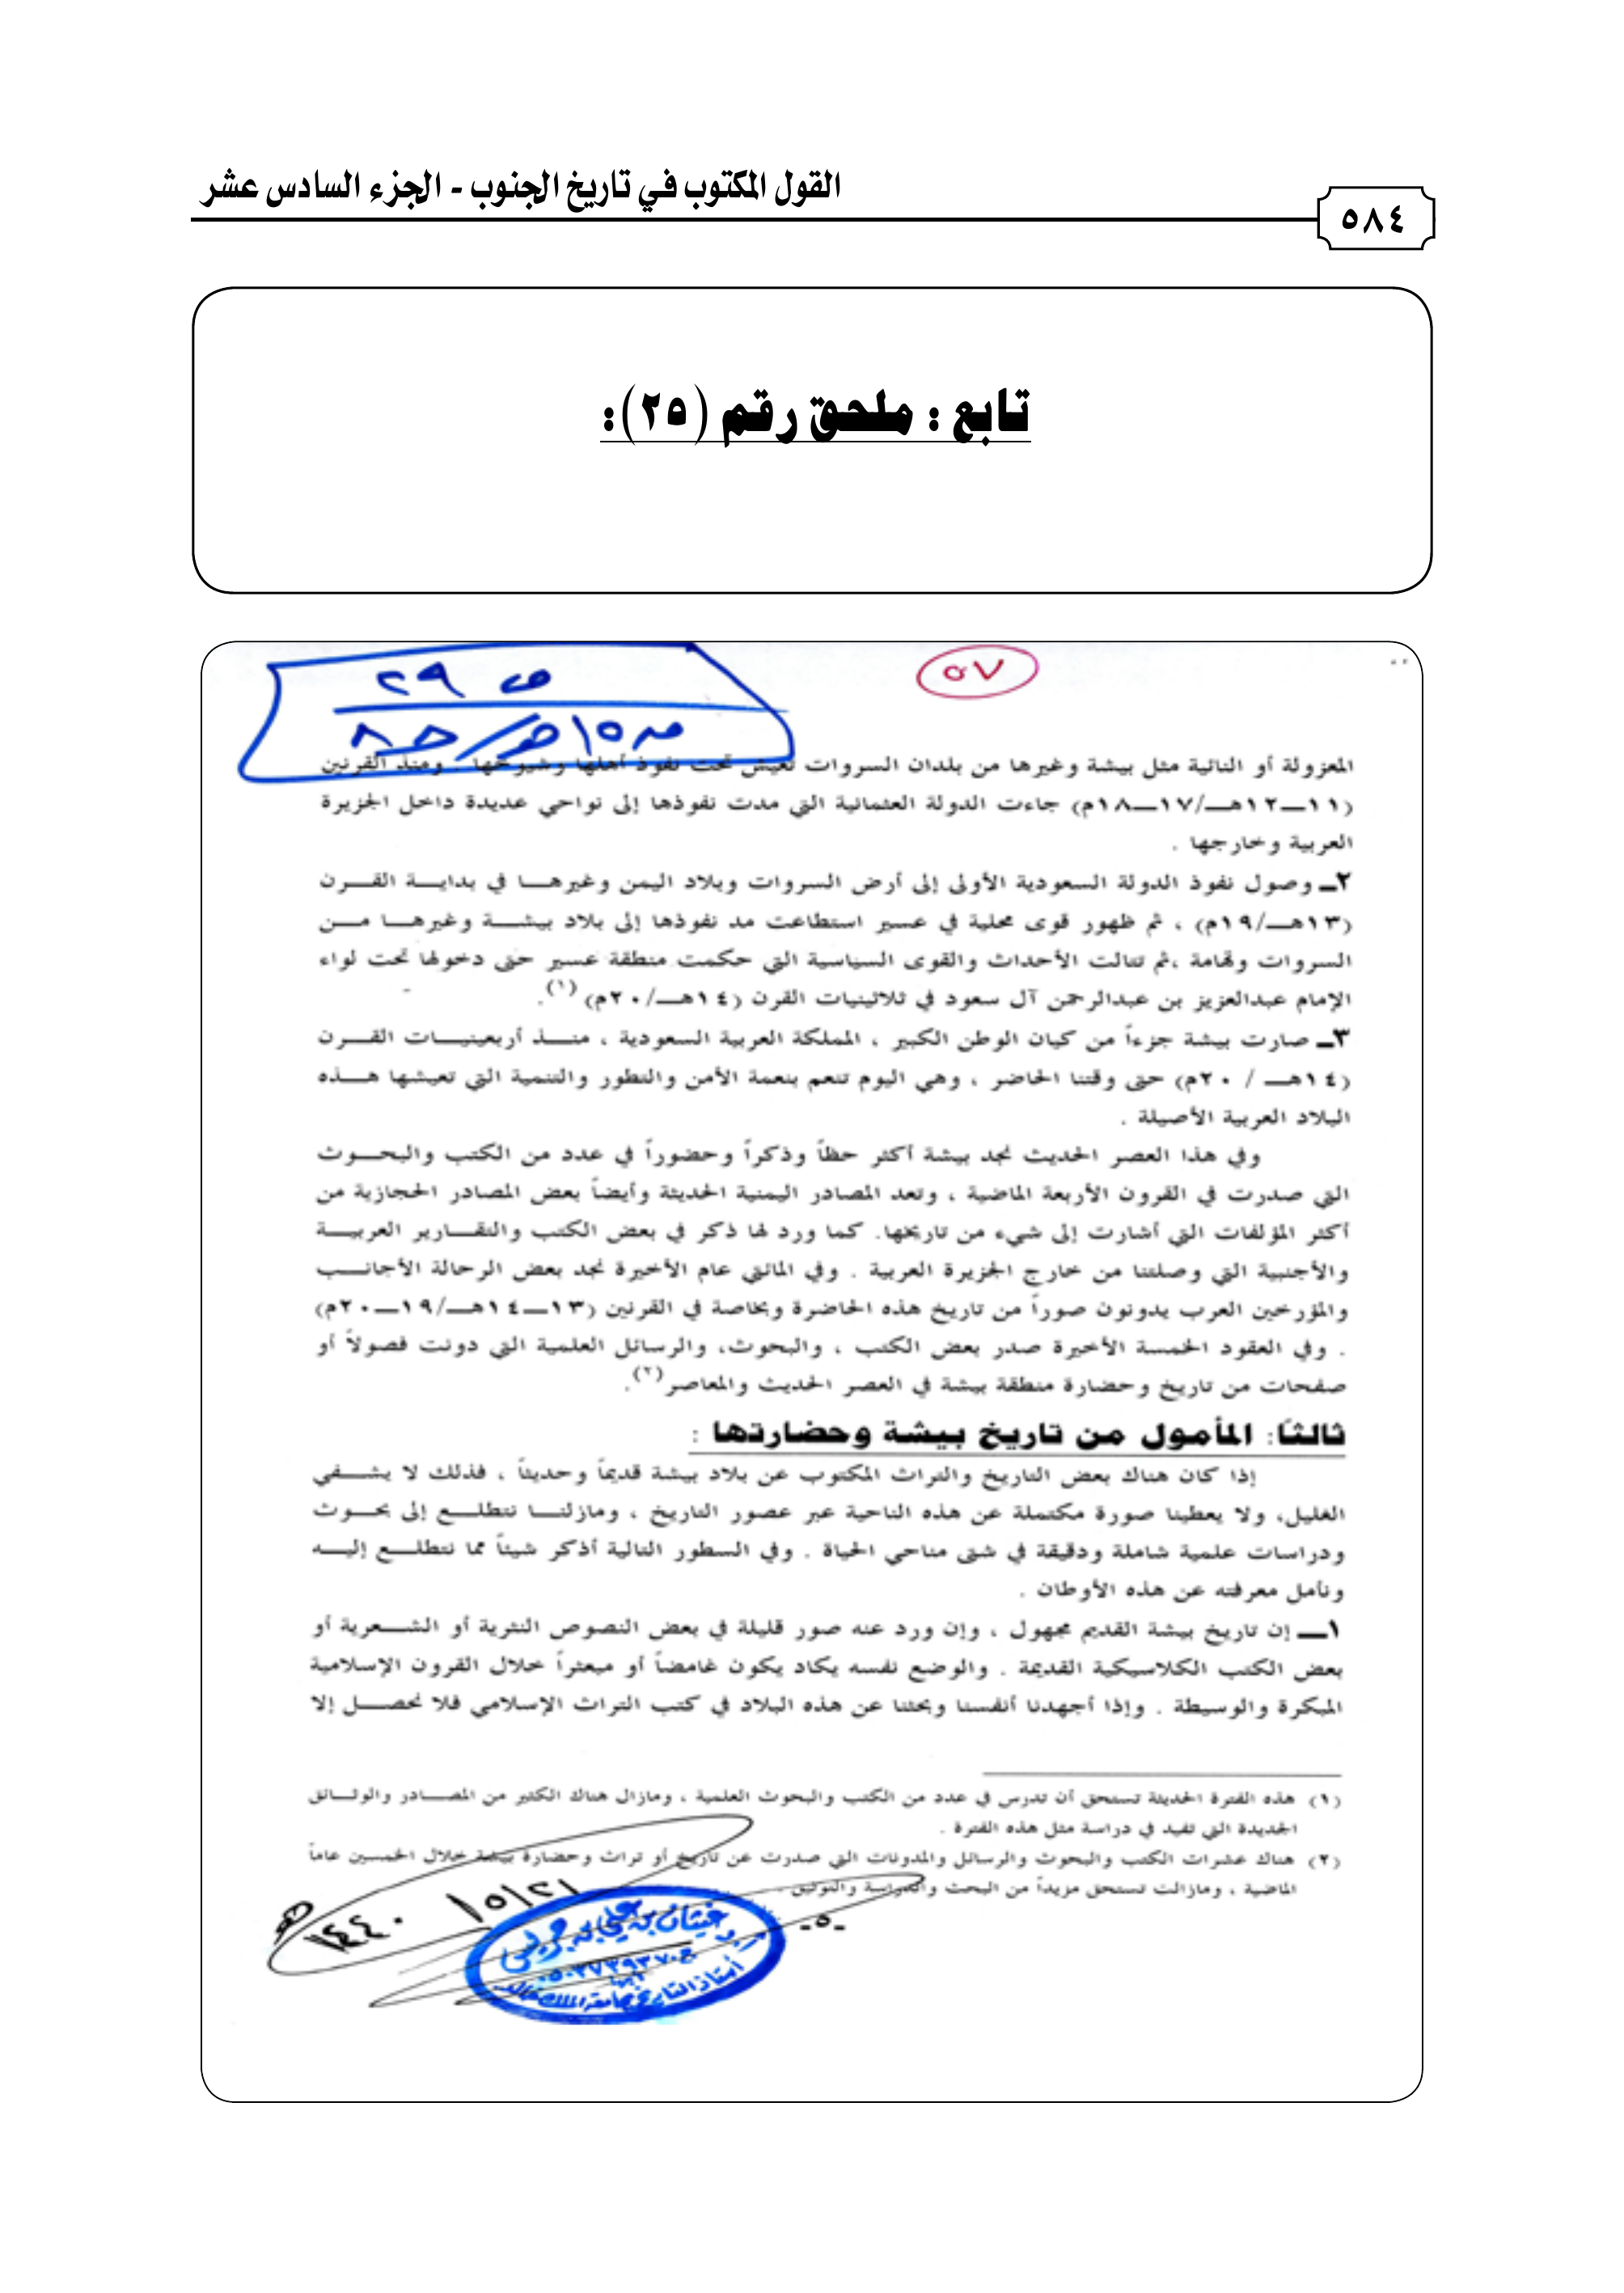 القول المكتوب في تاريخ الجنوب - الجزء السادس عشر
٥٨٤
تابع : ملحق رقم (٢٥):
٥٧
ص ٢٩
المعزولة أو النائية مثل بيشة وغيرها من بلدان السروات تعيش تحت نفوذ أهلها وشيوخها . ومنذ القرنين
(١١ــ١٢هـ/١٧ــ١٨م) جاءت الدولة العثمانية التي مدت نفوذها إلى نواحي عديدة داخل الجزيرة
العربية وخارجها .
٢ــ وصول نفوذ الدولة السعودية الأولى إلى أرض السروات وبلاد اليمن وغيرهـا في بدايـة القـرن
(١٣هـ/١٩م) ، ثم ظهور قوى محلية في عسير استطاعت مد نفوذها إلى بلاد بيشـة وغيرهـا مـن
السروات وتهامة ،ثم تتالت الأحداث والقوى السياسية التي حكمت منطقة عسير حتى دخولها تحت لواء
الإمام عبدالعزيز بن عبدالرحمن آل سعود في ثلاثينيات القرن (١٤هـ/٢٠م) (١).
٣ــ صارت بيشة جزءاً من كيان الوطن الكبير ، المملكة العربية السعودية ، منـذ أربعينيـات القـرن
(١٤هـ / ٢٠م) حتى وقتنا الحاضر ، وهي اليوم تنعم بنعمة الأمن والتطور والتنمية التي تعيشها هـذه
البلاد العربية الأصيلة .
وفي هذا العصر الحديث نجد بيشة أكثر حظاً وذكراً وحضوراً في عدد من الكتب والبحـوث
التي صدرت في القرون الأربعة الماضية ، وتعد المصادر اليمنية الحديثة وأيضاً بعض المصادر الحجازية من
أكثر المؤلفات التي أشارت إلى شيء من تاريخها. كما ورد لها ذكر في بعض الكتب والتقـارير العربيـة
والأجنبية التي وصلتنا من خارج الجزيرة العربية . وفي المائتي عام الأخيرة نجد بعض الرحالة الأجانـب
والمؤرخين العرب يدونون صوراً من تاريخ هذه الحاضرة وبخاصة في القرنين (١٣ــ١٤هـ/١٩ــ٢٠م)
. وفي العقود الخمسة الأخيرة صدر بعض الكتب ، والبحوث، والرسائل العلمية التي دونت فصولاً أو
صفحات من تاريخ وحضارة منطقة بيشة في العصر الحديث والمعاصر(٢).
ثالثاً: المأمول من تاريخ بيشة وحضارتها :
إذا كان هناك بعض التاريخ والتراث المكتوب عن بلاد بيشة قديماً وحديثاً ، فذلك لا يشـفي
الغليل، ولا يعطينا صورة مكتملة عن هذه الناحية عبر عصور التاريخ ، ومازلنـا نتطلـع إلى بحـوث
ودراسات علمية شاملة ودقيقة في شتى مناحي الحياة . وفي السطور التالية أذكر شيئاً مما نتطلـع إليـه
ونأمل معرفته عن هذه الأوطان .
١ــ إن تاريخ بيشة القديم مجهول ، وإن ورد عنه صور قليلة في بعض النصوص النثرية أو الشـعرية أو
بعض الكتب الكلاسيكية القديمة . والوضع نفسه يكاد يكون غامضاً أو مبعثراً خلال القرون الإسلامية
المبكرة والوسيطة . وإذا أجهدنا أنفسنا وبحثنا عن هذه البلاد في كتب التراث الإسلامي فلا نحصـل إلا
(١) هذه الفترة الحديثة تستحق أن تدرس في عدد من الكتب والبحوث العلمية ، ومازال هناك الكثير من المصـادر والوثـائق
الجديدة التي تفيد في دراسة مثل هذه الفترة .
(٢) هناك عشرات الكتب والبحوث والرسائل والمدونات التي صدرت عن تاريخ أو تراث وحضارة بيشة خلال الخمسين عاماً
الماضية ، ومازالت تستحق مزيداً من البحث والدراسة والتوثيق .
-٥-
١٤٤٠/٥/٢١هـ
أ.د. غيثان بن علي بن جريس
أستاذ التاريخ بجامعة الملك خالد